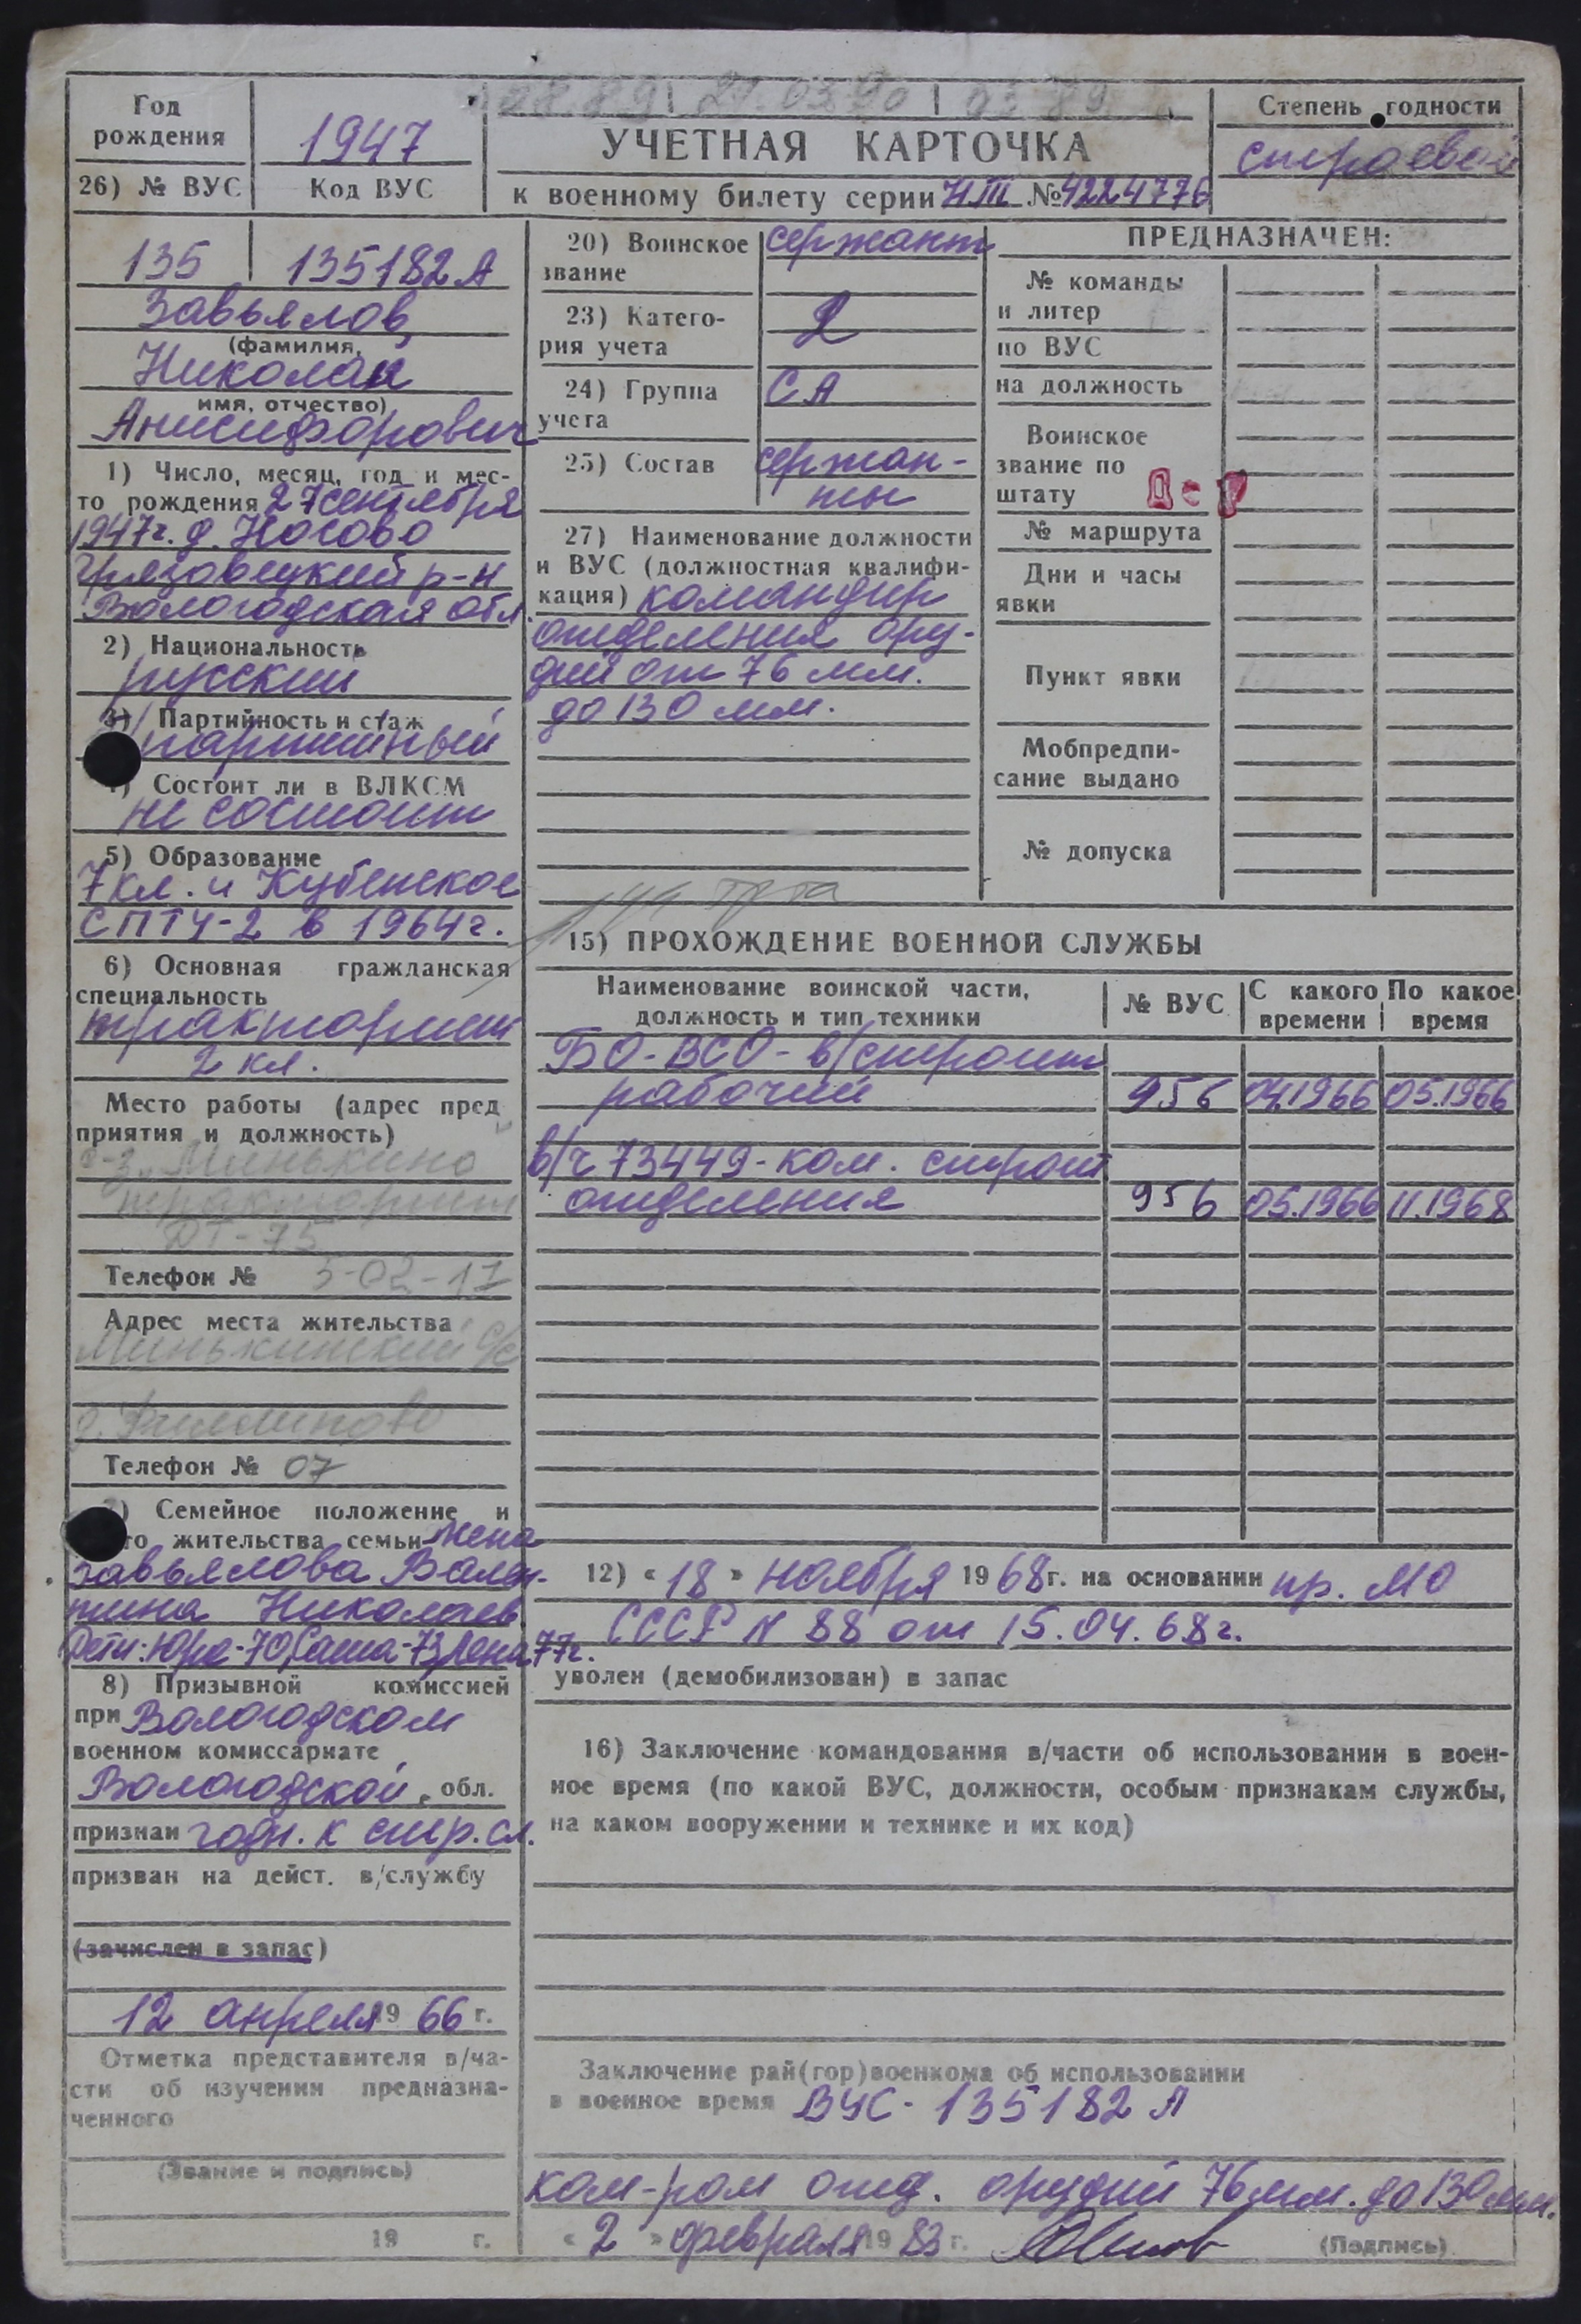 08.89 21.03.90 03.89
Год рождения 1947
УЧЕТНАЯ КАРТОЧКА
к военному билету серии НТ № 4224776
Степень годности
строевой
26) № ВУС Код ВУС
135 135182А
Завьялов
(фамилия,
Николай
имя, отчество)
Анисифорович
1) Число, месяц, год и мес-
то рождения 27 сентября
1947г. д. Носово
Грязовецкий р-н
Вологодская обл.
2) Национальность
русский
3) Партийность и стаж
партийный
4) Состоит ли в ВЛКСМ
не состоит
5) Образование
7 кл. и Кубенское
СПТУ-2 в 1964г.
6) Основная гражданская
специальность
тракторист
2 кл.
Место работы (адрес пред
приятия и должность)
с-з „Минькино
тракторист
ДТ-75
Телефон № 5-02-17
Адрес места жительства
Минькинский с/с
Телефон № 07
7) Семейное положение и
место жительства семьи жена
Завьялова Вален-
тина Николаев
Дети: Юра-70, Саша-73, Лена 77г.
8) Призывной комиссией
при Вологодском
военном комиссариате
Вологодской обл.
признан годн. к стр. сл.
призван на дейст. в/службу
(зачислен в запас)
12 апреля 1966 г.
Отметка представителя в/ча-
сти об изучении предназна-
ченного
(Звание и подпись)
19 г.
20) Воинское сержант
звание
23) Катего- 2
рия учета
24) Группа СА
учета
25) Состав сержан-
ты
27) Наименование должности
и ВУС (должностная квалифи-
кация) командир
отделения ору-
дий от 76 мм.
до 130 мм.
ПРЕДНАЗНАЧЕН:
№ команды
и литер
по ВУС
на должность
Воинское
звание по
штату
№ маршрута
Дни и часы
явки
Пункт явки
Мобпредпи-
сание выдано
№ допуска
15) ПРОХОЖДЕНИЕ ВОЕННОЙ СЛУЖБЫ
Наименование воинской части, должность и тип техники № ВУС С какого времени По какое время
БО-ВСО-в/строит
рабочий 956 04.1966 05.1966
в/ч 73449-ком. строит
отделения 956 05.1966 11.1968
12) « 18 » ноября 1968г. на основании пр. МО
СССР N 88 от 15.04.68г.
уволен (демобилизован) в запас
16) Заключение командования в/части об использовании в воен-
ное время (по какой ВУС, должности, особым признакам службы,
на каком вооружении и технике и их код)
Заключение рай(гор)военкома об использовании
в военное время ВУС-135182 А
ком-ром отд. орудий 76мм. до 130мм.
« 2 » февраля 1983г. (Подпись)